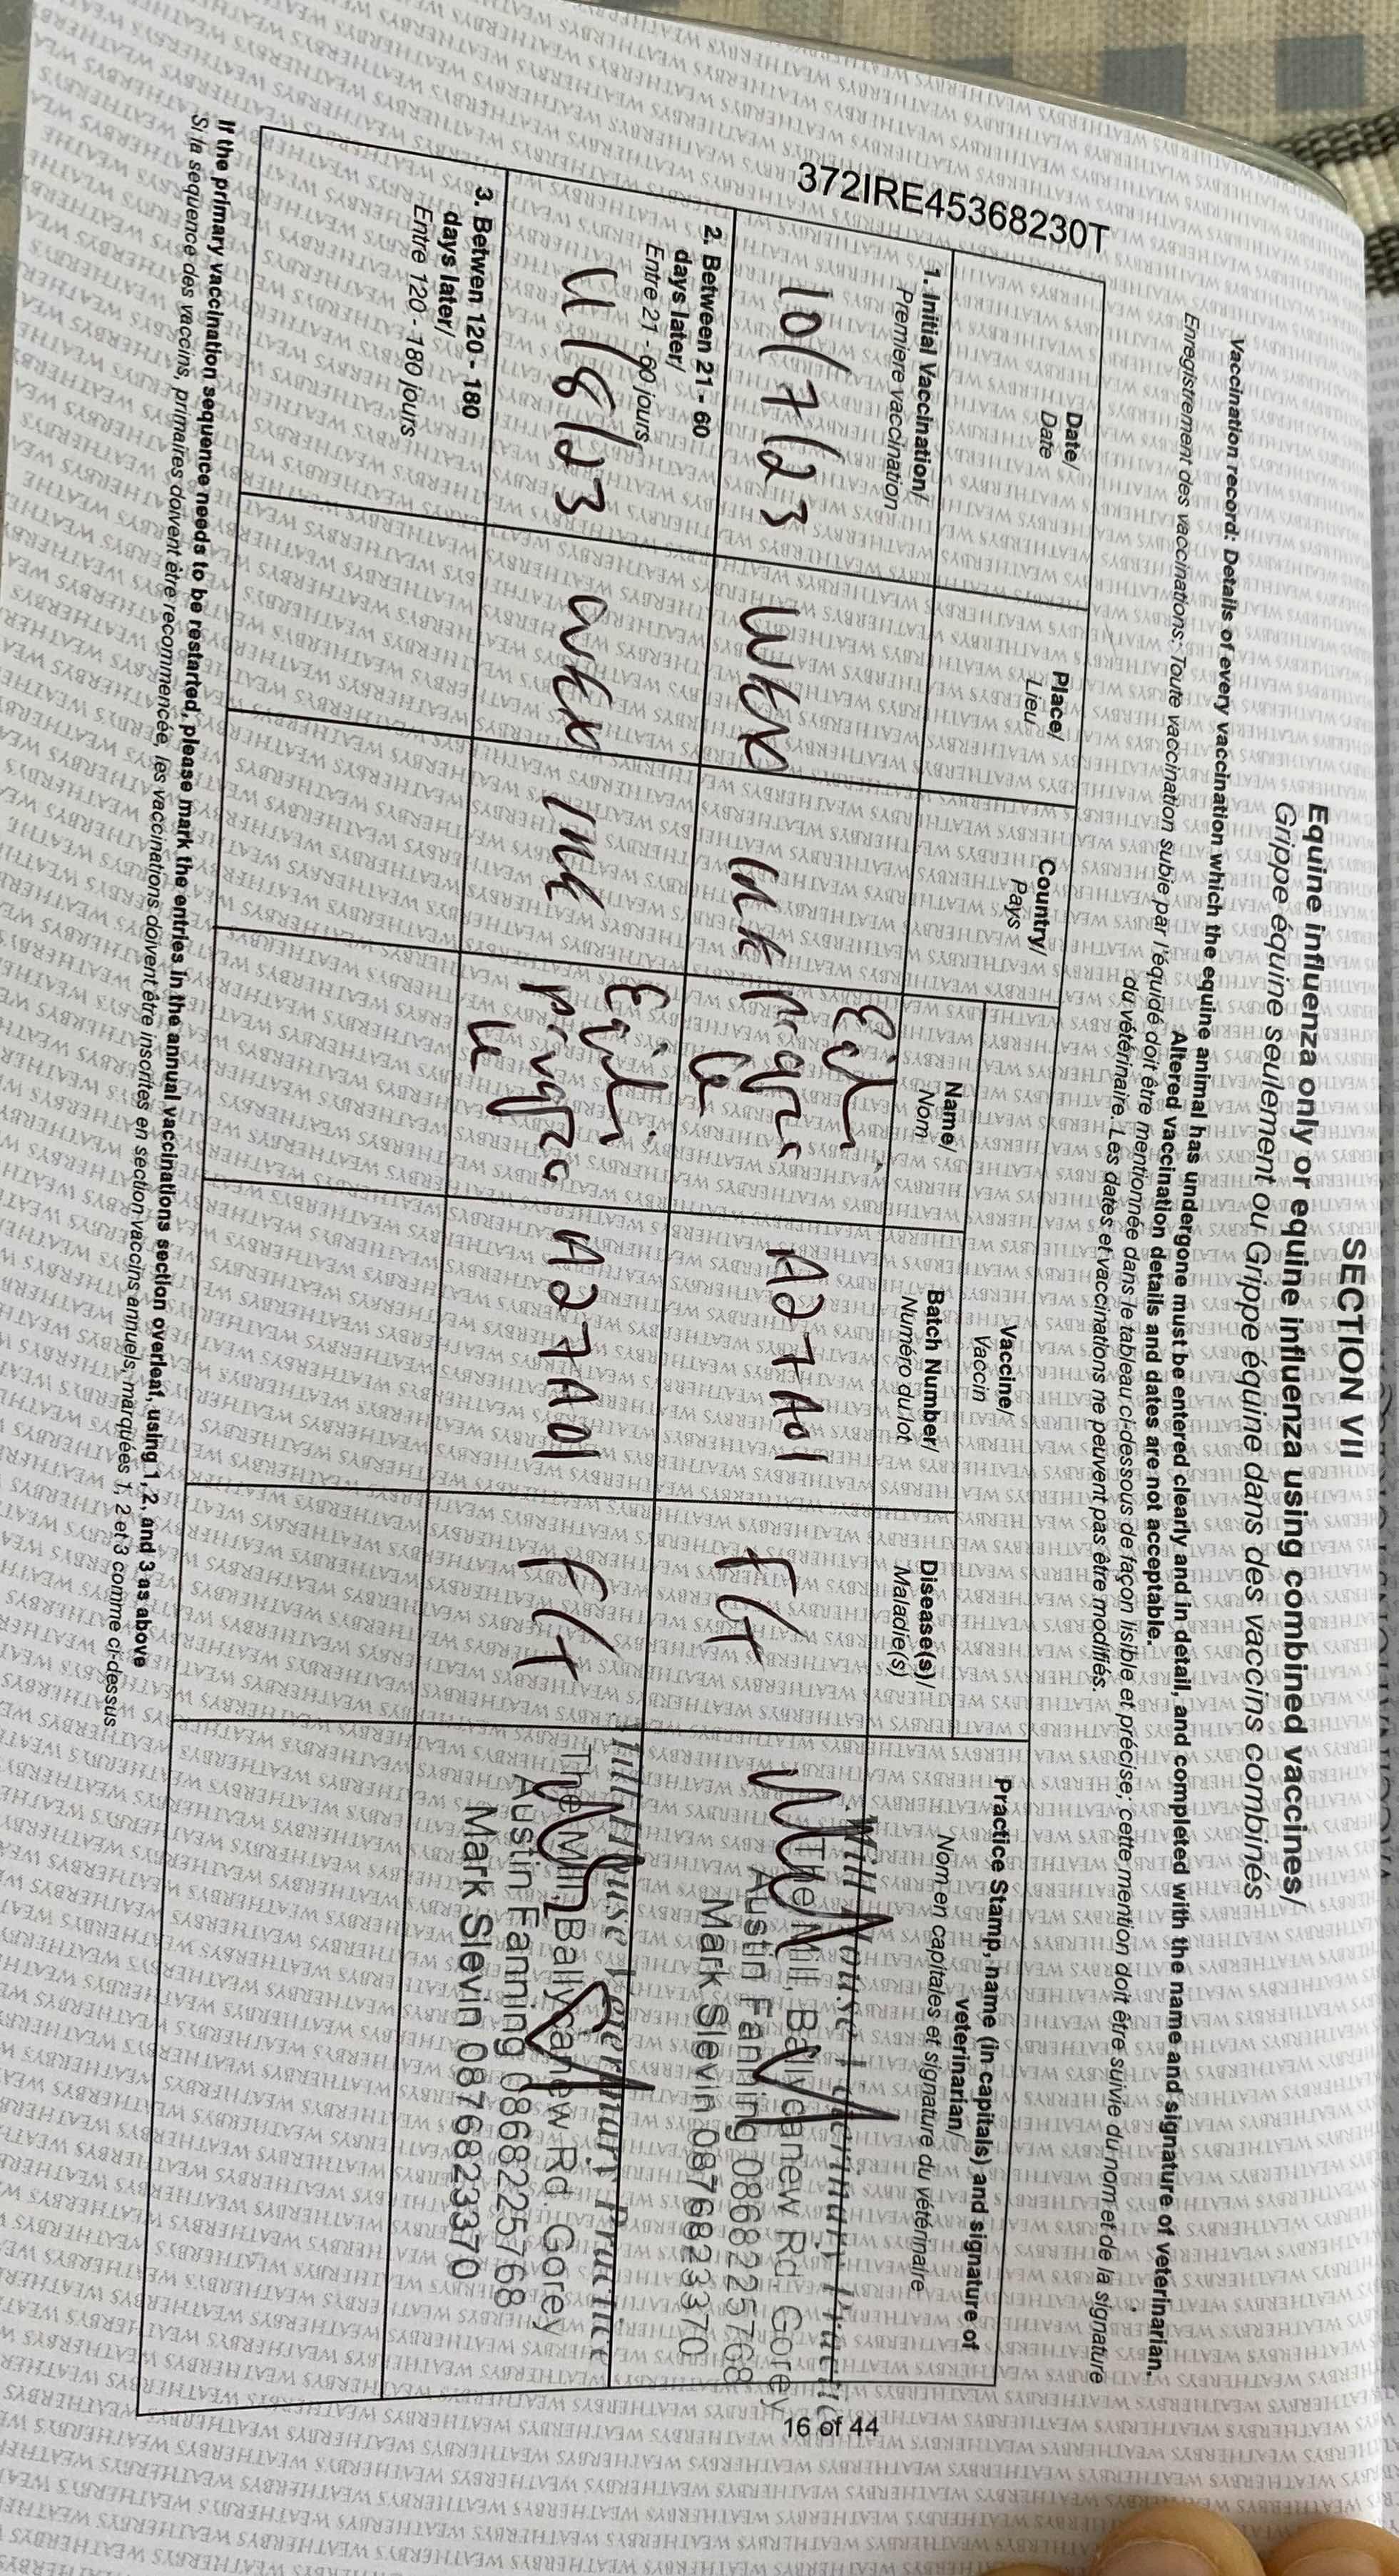 SECTION VII
Equine influenza only or equine influenza using combined vaccines/
Grippe équine seulement ou Grippe équine dans des vaccins combinés
Vaccination record: Details of every vaccination which the equine animal has undergone must be entered clearly and in detail, and completed with the name and signature of veterinarian.
Altered vaccination details and dates are not acceptable.
Enregistrement des vaccinations: Toute vaccination subie par l'équidé doit être mentionnée dans le tableau ci-dessous de façon lisible et précise; cette mention doit être suivie du nom et de la signature
du vétérinaire. Les dates et vaccinations ne peuvent pas être modifiés.
372IRE45368230T
Date/
Date
Place/
Lieu
Country/
Pays
Vaccine/
Vaccin
Name/
Nom
Batch Number/
Numéro du lot
Disease(s)/
Maladie(s)
Practice Stamp, name (in capitals) and signature of
veterinarian/
Nom en capitales et signature du vétérinaire
1. Initial Vaccination/
Premiere vaccination
10/7/23
A27A01
Mill House Veterinary Practice
The Mill, Ballycanew Rd. Gorey
Austin Fanning 0868225768
Mark Slevin 0876823370
2. Between 21 - 60
days later/
Entre 21 - 60 jours
11/8/23
Equi
A27A01
Mill House Veterinary Practice
The Mill, Ballycanew Rd. Gorey
Austin Fanning 0868225768
Mark Slevin 0876823370
3. Betwen 120 - 180
days later/
Entre 120 - 180 jours
If the primary vaccination sequence needs to be restarted, please mark the entries in the annual vaccinations section overleaf, using 1, 2, and 3 as above
Si la sequence des vaccins primaires doivent être recommencée, les vaccinations doivent être inscrites en section vaccins annuels, marquées 1, 2 et 3 comme ci-dessus
16 of 44